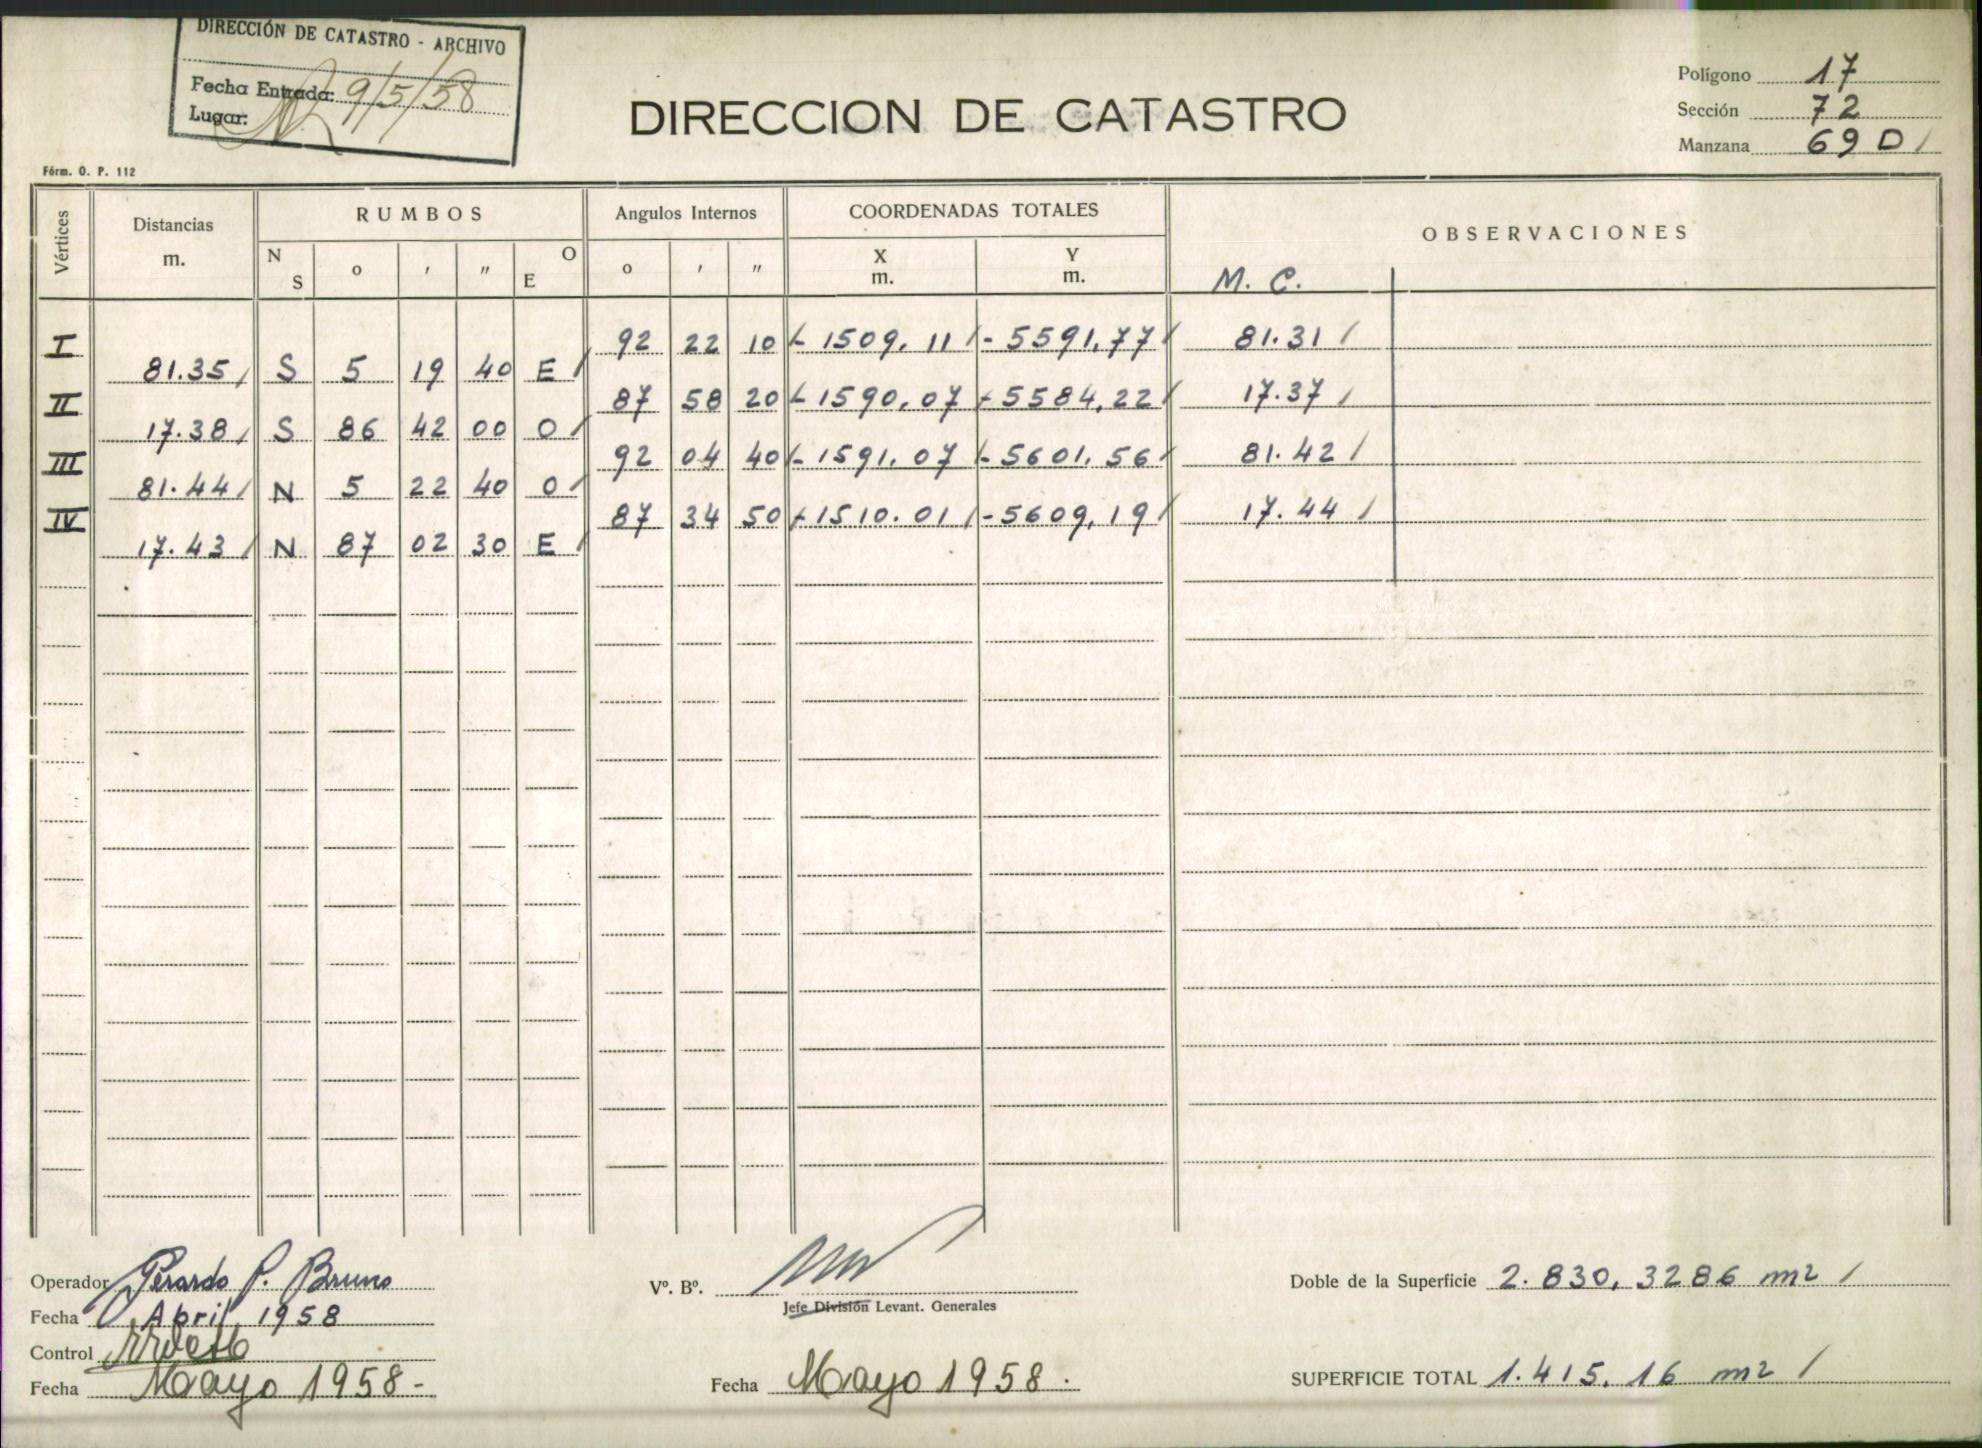 DIRECCIÓN DE CATASTRO - ARCHIVO
Fecha Entrada: 9/5/58
Lugar:
DIRECCION DE CATASTRO
Polígono 17
Sección 72
Manzana 69 D /
Fórm. O. P. 112
Vértices
Distancias
m.
RUMBOS
N S o ' " E O
Angulos Internos
o ' "
COORDENADAS TOTALES
X
m.
Y
m.
OBSERVACIONES
M. C.
I 92 22 10 - 1509.11 / - 5591,77 / 81.31 /
81.35 / S 5 19 40 E /
II 87 58 20 - 1590,07 - 5584,22 / 17.37 /
17.38 / S 86 42 00 O /
III 92 04 40 - 1591.07 - 5601.56 / 81.42 /
81.44 / N 5 22 40 O /
IV 87 34 50 - 1510.01 / - 5609,19 / 17.44 /
17.43 / N 87 02 30 E /
Operador Gerardo P. Bruno
Fecha Abril 1958
Control
Fecha Mayo 1958-
Vº. Bº.
Jefe División Levant. Generales
Fecha Mayo 1958.
Doble de la Superficie 2.830,3286 m2 /
SUPERFICIE TOTAL 1.415,16 m2 /